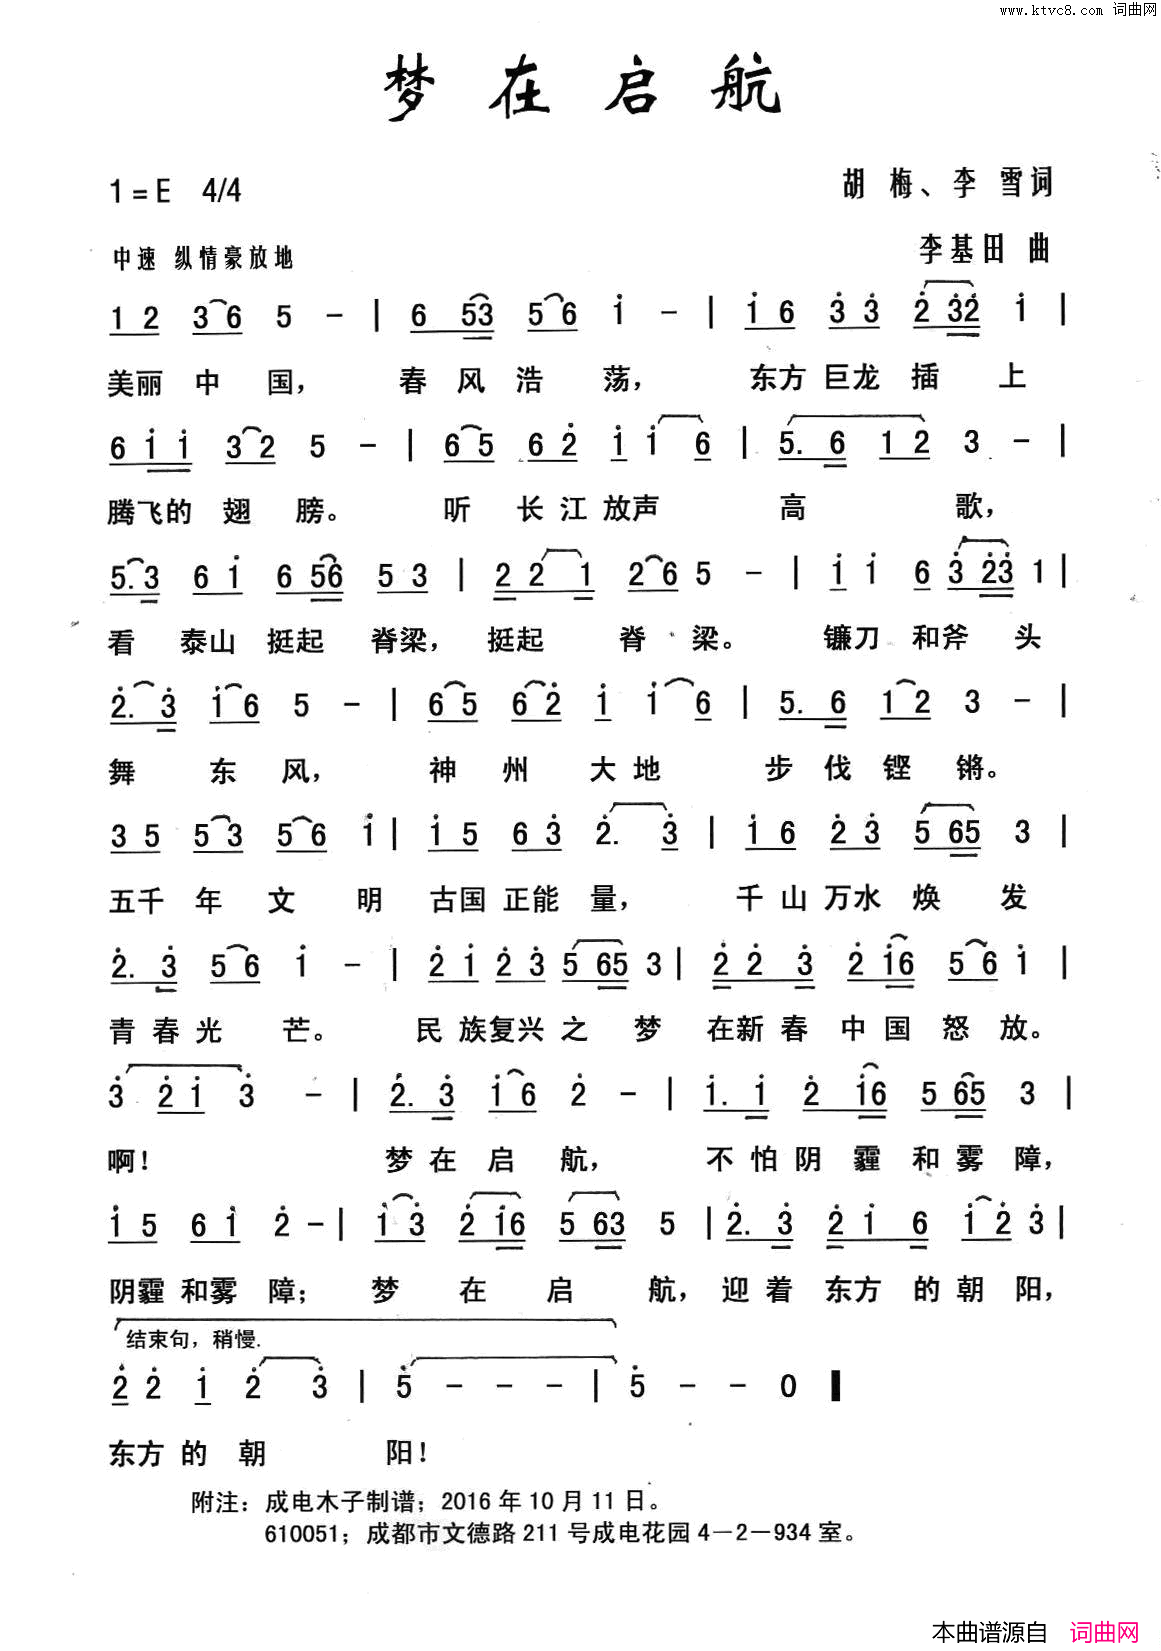 www.ktvc8.com 词曲网
梦在启航
1=E 4/4
胡 梅、李 雪词
中速 纵情豪放地
李基田 曲
1 2 3 6 5 - | 6 53 5 6 i - | i 6 3 3 2 32 i |
美丽 中 国， 春 风 浩 荡， 东方 巨龙 插 上
6 i i 3 2 5 - | 6 5 6 2 i i 6 | 5. 6 1 2 3 - |
腾飞的 翅 膀。 听 长 江 放声 高 歌，
5. 3 6 i 6 56 5 3 | 2 2 1 2 6 5 - | i i 6 3 23 1 |
看 泰山 挺起 脊梁， 挺起 脊 梁。 镰刀 和斧 头
2. 3 i 6 5 - | 6 5 6 2 i i 6 | 5. 6 1 2 3 - |
舞 东 风， 神 州 大 地 步 伐 铿 锵。
3 5 5 3 5 6 i | i 5 6 3 2. 3 | i 6 2 3 5 65 3 |
五千 年 文 明 古国 正能 量， 千 山 万水 焕 发
2. 3 5 6 i - | 2 i 2 3 5 65 3 | 2 2 3 2 i6 5 6 i |
青 春 光 芒。 民 族复兴 之 梦 在新 春 中 国 怒 放。
3 2 i 3 - | 2. 3 i 6 2 - | i. i 2 i6 5 65 3 |
啊！ 梦 在 启 航， 不 怕 阴 霾 和 雾 障，
i 5 6 i 2 - | i 3 2 i6 5 63 5 | 2. 3 2 i 6 i 2 3 |
阴霾 和雾 障； 梦 在 启 航， 迎 着 东方 的 朝 阳，
结束句，稍慢.
2 2 i 2 3 | 5 - - - | 5 - - 0 ‖
东方 的 朝 阳！
附注：成电木子制谱；2016 年 10 月 11 日。
610051；成都市文德路 211 号成电花园 4－2－934 室。
本曲谱源自 词曲网